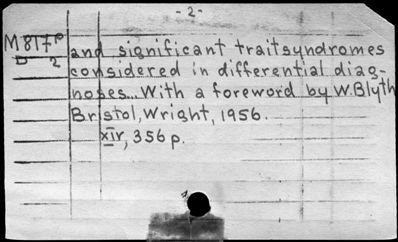 - 2 -
M817p and significant traitsyndromes
D 2 considered in differential diag-
noses... With a foreword by W.Blyth
Bristol, Wright, 1956.
xiv, 356 p.